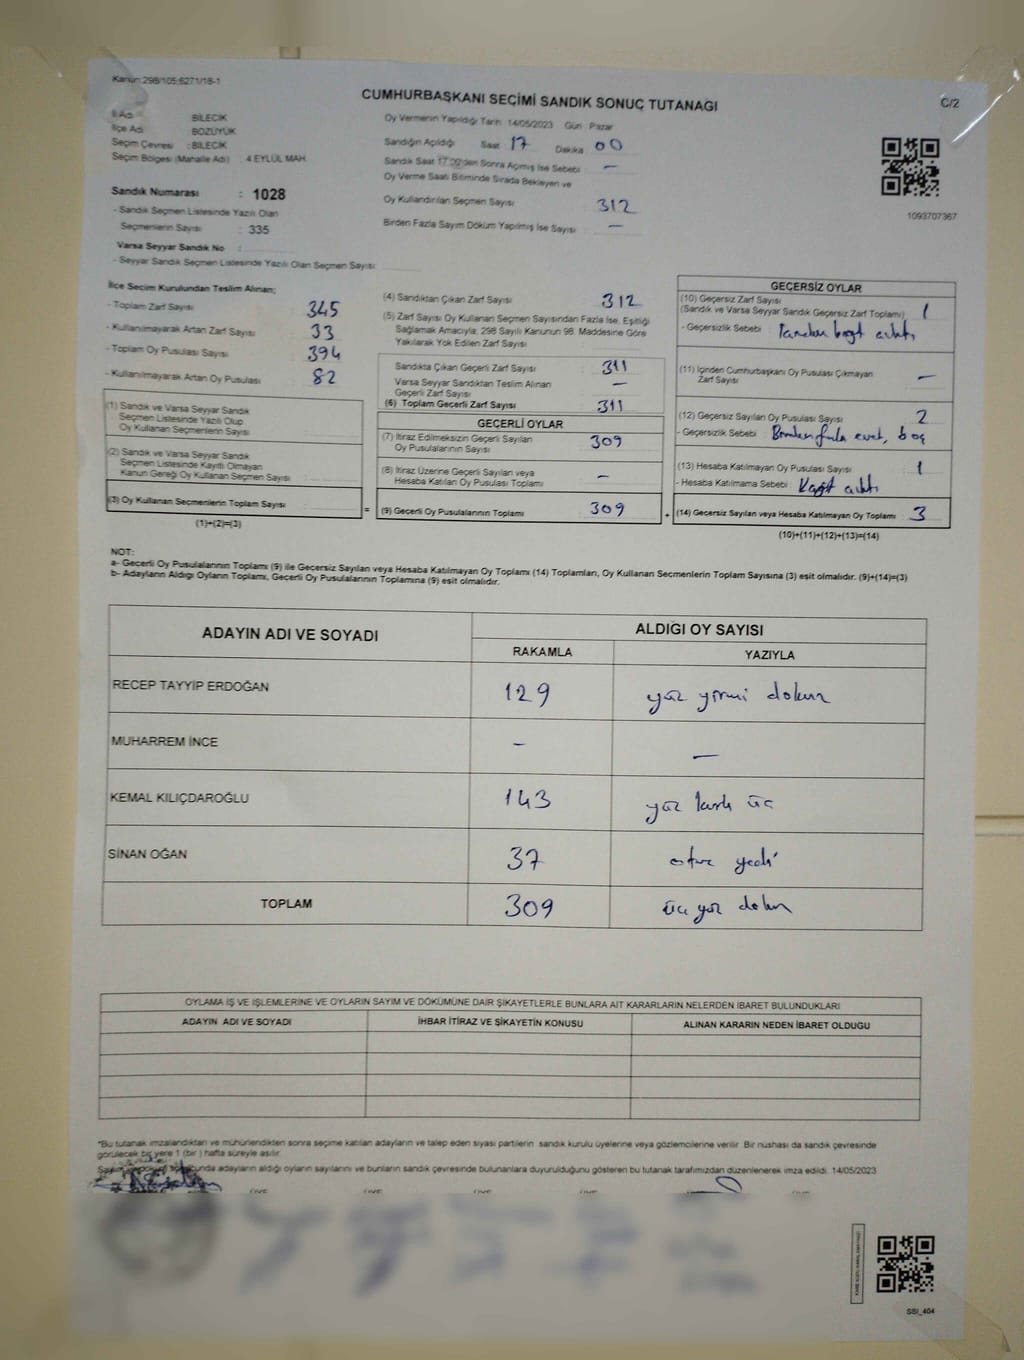 Kanun:298/105;6271/18-1
CUMHURBAŞKANI SEÇİMİ SANDIK SONUÇ TUTANAĞI
C/2
İl Adı : BİLECİK
İlçe Adı : BOZÜYÜK
Seçim Çevresi : BİLECİK
Seçim Bölgesi (Mahalle Adı) : 4 EYLÜL MAH.
Sandık Numarası : 1028
- Sandık Seçmen Listesinde Yazılı Olan
Seçmenlerin Sayısı : 335
Varsa Seyyar Sandık No :
- Seyyar Sandık Seçmen Listesinde Yazılı Olan Seçmen Sayısı:
Oy Vermenin Yapıldığı Tarih: 14/05/2023 Gün : Pazar
Sandığın Açıldığı Saat 17 Dakika 00
Sandık Saat 17:00'den Sonra Açılmış İse Sebebi : —
Oy Verme Saati Bitiminde Sırada Bekleyen ve
Oy Kullandırılan Seçmen Sayısı : 312
Birden Fazla Sayım Döküm Yapılmış İse Sayısı : —
1093707367
İlçe Seçim Kurulundan Teslim Alınan;
- Toplam Zarf Sayısı : 345
- Kullanılmayarak Artan Zarf Sayısı : 33
- Toplam Oy Pusulası Sayısı : 394
- Kullanılmayarak Artan Oy Pusulası : 82
(1) Sandık ve Varsa Seyyar Sandık
Seçmen Listesinde Yazılı Olup
Oy Kullanan Seçmenlerin Sayısı :
(2) Sandık ve Varsa Seyyar Sandık
Seçmen Listesinde Kayıtlı Olmayan
Kanun Gereği Oy Kullanan Seçmen Sayısı :
(3) Oy Kullanan Seçmenlerin Toplam Sayısı :
(1)+(2)=(3)
(4) Sandıktan Çıkan Zarf Sayısı : 312
(5) Zarf Sayısı Oy Kullanan Seçmen Sayısından Fazla İse, Eşitliği
Sağlamak Amacıyla; 298 Sayılı Kanunun 98. Maddesine Göre
Yakılarak Yok Edilen Zarf Sayısı :
Sandıkta Çıkan Geçerli Zarf Sayısı : 311
Varsa Seyyar Sandıktan Teslim Alınan
Geçerli Zarf Sayısı : —
(6) Toplam Geçerli Zarf Sayısı : 311
GEÇERLİ OYLAR
(7) İtiraz Edilmeksizin Geçerli Sayılan
Oy Pusulalarının Sayısı : 309
(8) İtiraz Üzerine Geçerli Sayılan veya
Hesaba Katılan Oy Pusulası Toplamı : —
(9) Geçerli Oy Pusulalarının Toplamı : 309
=
+
GEÇERSİZ OYLAR
(10) Geçersiz Zarf Sayısı
(Sandık ve Varsa Seyyar Sandık Geçersiz Zarf Toplamı) : 1
- Geçersizlik Sebebi :
(11) İçinden Cumhurbaşkanı Oy Pusulası Çıkmayan
Zarf Sayısı : —
(12) Geçersiz Sayılan Oy Pusulası Sayısı : 2
- Geçersizlik Sebebi : Birden fazla evet, boş
(13) Hesaba Katılmayan Oy Pusulası Sayısı : 1
- Hesaba Katılmama Sebebi : Kağıt çıktı
(14) Geçersiz Sayılan veya Hesaba Katılmayan Oy Toplamı : 3
(10)+(11)+(12)+(13)=(14)
NOT:
a- Geçerli Oy Pusulalarının Toplamı (9) ile Geçersiz Sayılan veya Hesaba Katılmayan Oy Toplamı (14) Toplamları, Oy Kullanan Seçmenlerin Toplam Sayısına (3) eşit olmalıdır. (9)+(14)=(3)
b- Adayların Aldığı Oyların Toplamı, Geçerli Oy Pusulalarının Toplamına (9) eşit olmalıdır.
ADAYIN ADI VE SOYADI
ALDIĞI OY SAYISI
RAKAMLA YAZIYLA
RECEP TAYYİP ERDOĞAN 129 yüz yirmi dokuz
MUHARREM İNCE – —
KEMAL KILIÇDAROĞLU 143 yüz kırk üç
SİNAN OĞAN 37 otuz yedi
TOPLAM 309 üç yüz dokuz
OYLAMA İŞ VE İŞLEMLERİNE VE OYLARIN SAYIM VE DÖKÜMÜNE DAİR ŞİKAYETLERLE BUNLARA AİT KARARLARIN NELERDEN İBARET BULUNDUKLARI
ADAYIN ADI VE SOYADI İHBAR İTİRAZ VE ŞİKAYETİN KONUSU ALINAN KARARIN NEDEN İBARET OLDUĞU
*Bu tutanak imzalandıktan ve mühürlendikten sonra seçime katılan adayların ve talep eden siyasi partilerin sandık kurulu üyelerine veya gözlemcilerine verilir. Bir nüshası da sandık çevresinde
görülecek bir yere 1 (bir ) hafta süreyle asılır.
adayların aldığı oyların sayılarını ve bunların sandık çevresinde bulunanlara duyurulduğunu gösteren bu tutanak tarafımızdan düzenlenerek imza edildi. 14/05/2023
SSI_404